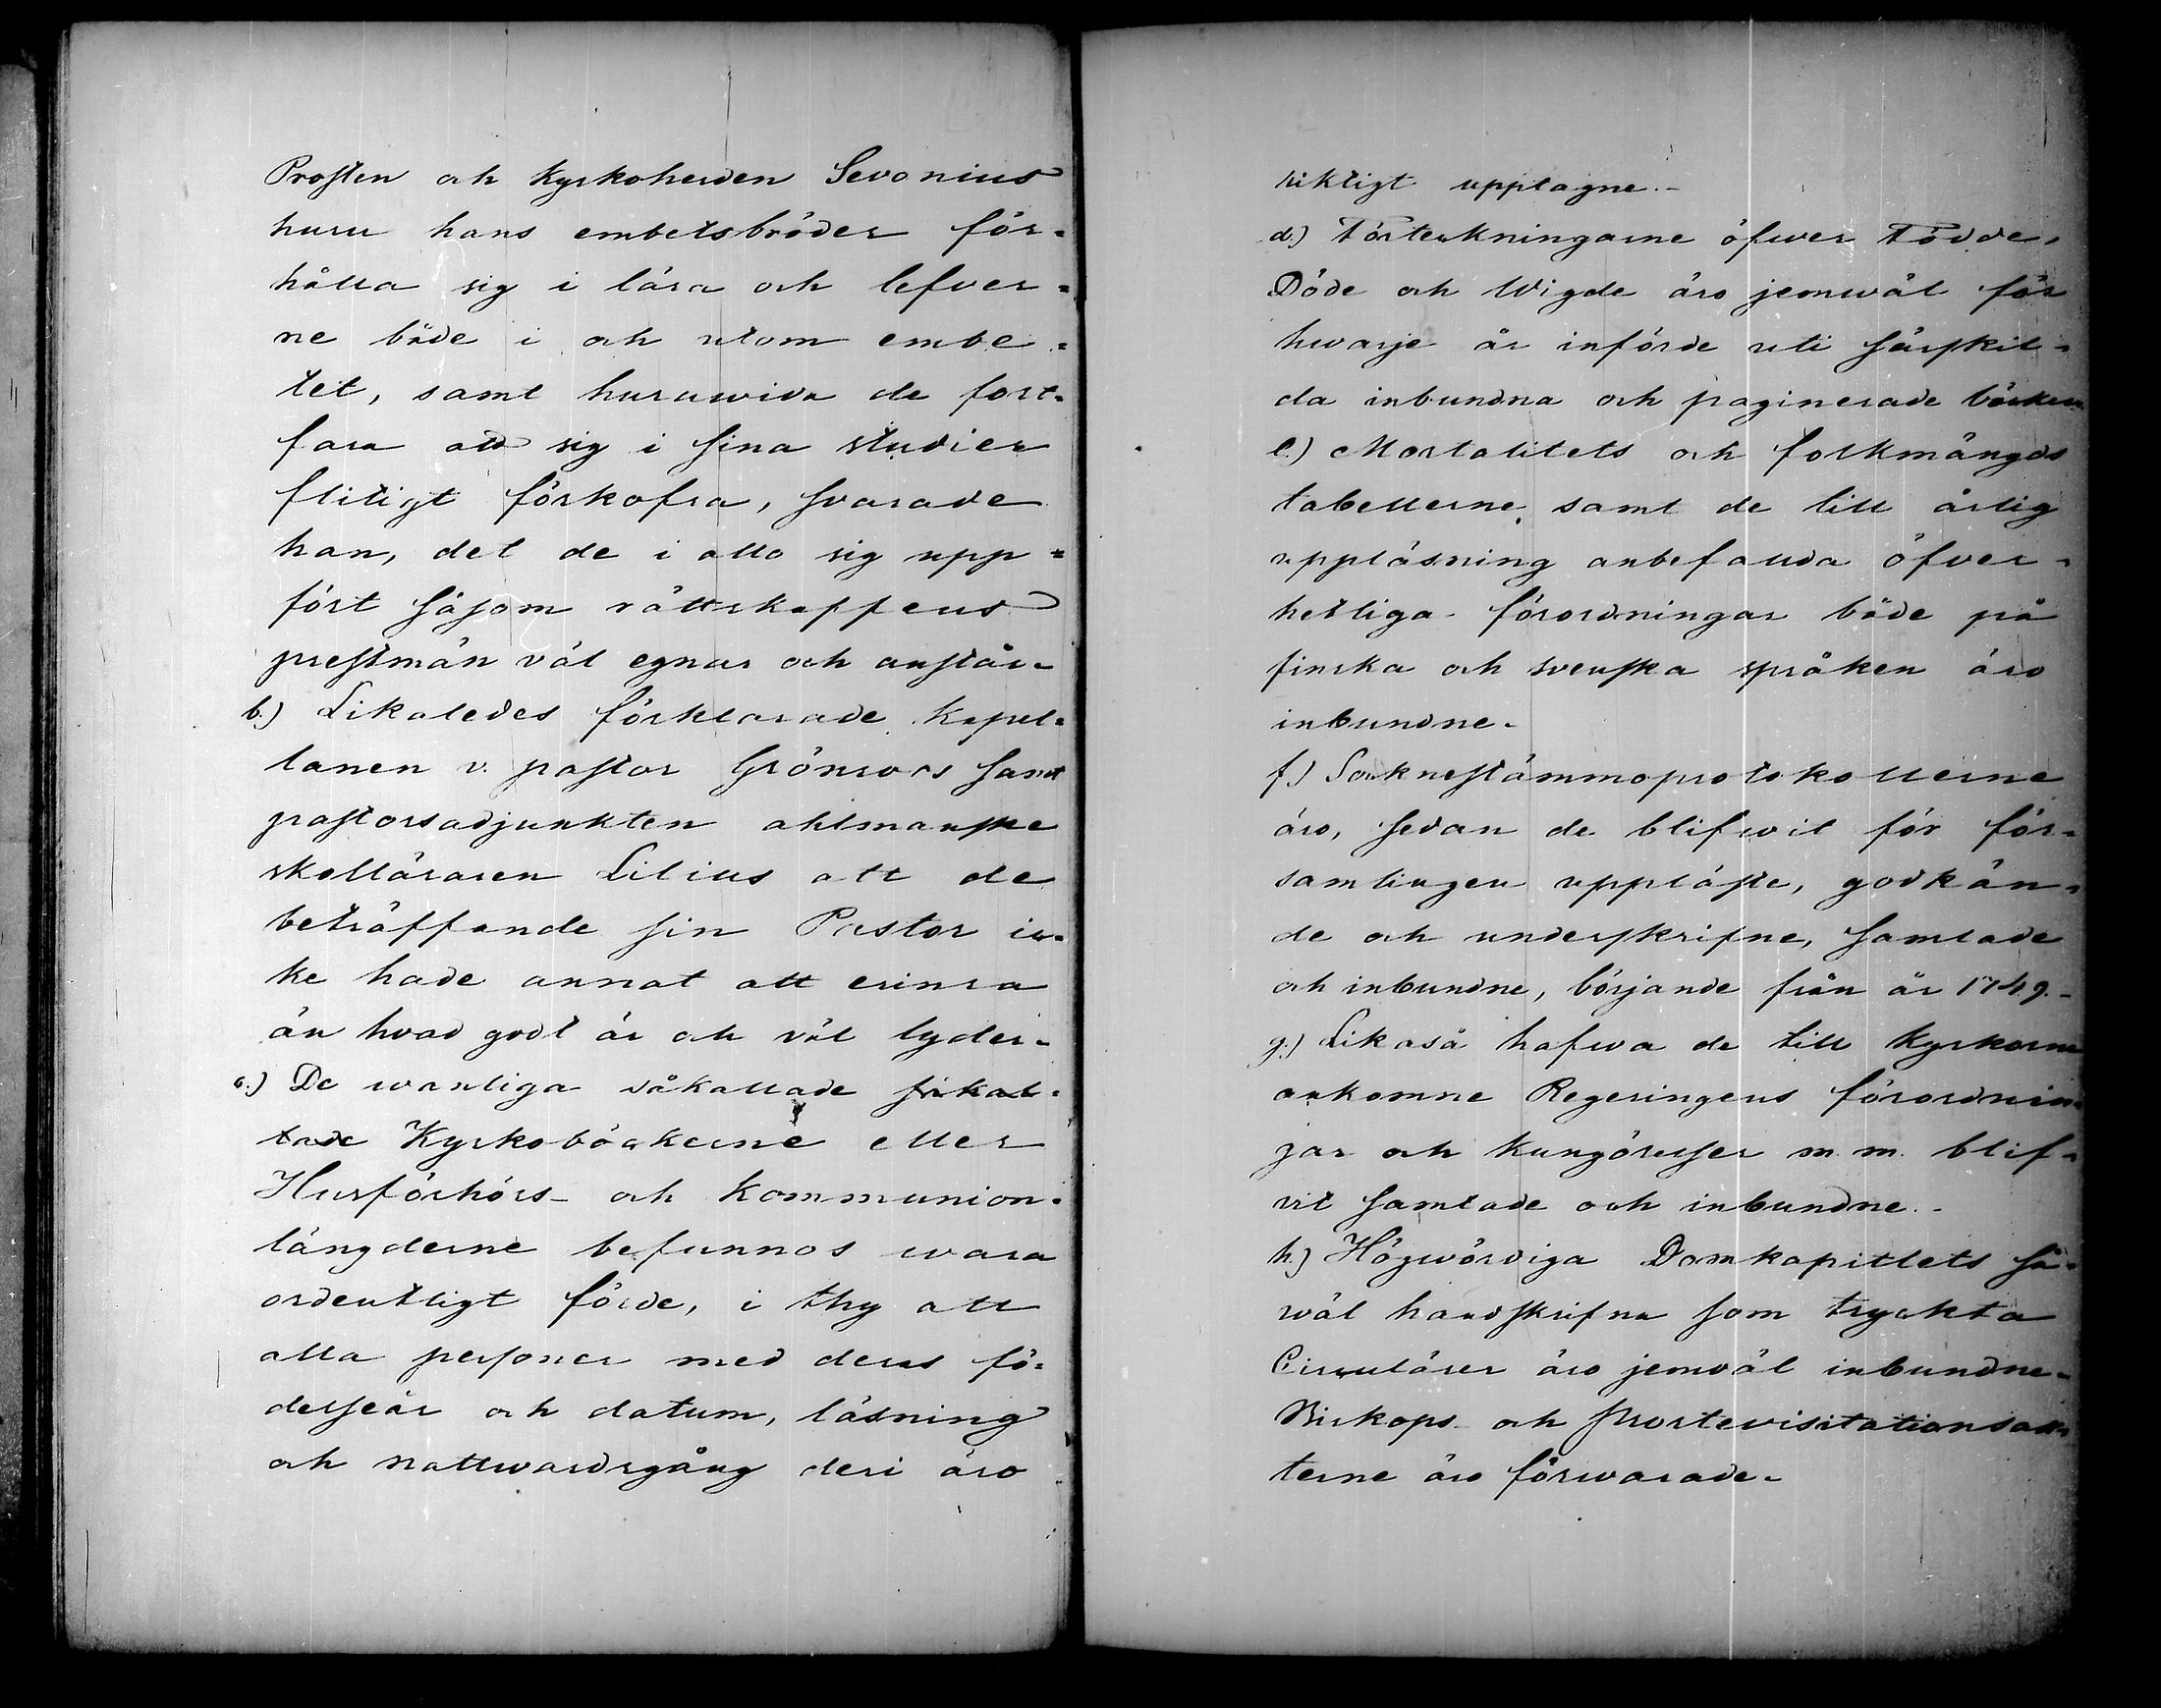 Prosten och Kyrkoherden Sevonius
huru hans embetsbröder för-
hålla sig i lära och lefver-
ne både i och utom embe-
tet, samt huruwida de fort-
fara att sig i sina studier
flitigt förkofra, svarade
han, det de i allo sig upp-
fört såsom rättskaffens
prestmän väl egnar och anstår.
b.) Likaledes förklarade Kapel-
lanen v. pastor Grönroos samt
pastorsadjunkten ahlmanske
skolläraren Lilius att de
beträffande sin Pastor ic-
ke hade annat att erinra
än hvad godt är och väl lyder.
c.) De wanliga såkallade såkal-
lade Kyrkoböckerne eller
Husförhörs- och Kommunion-
längderne befunnos wara
ordentligt förde, i thy att
alla personer med deras fö-
delseår och datum, läsning
och nattwardsgång deri äro
riktigt upptagne.-
d.) Förteckningarne öfwer Födde,
Döde och Wigde äro jemwäl för
hwarje år införde uti särskil-
da inbundna och paginerade böcker.
e.) Mortalitets och folkmängds
tabellerne samt de till årlig
uppläsning anbefallda öfver-
hetliga förordningar både på
finska och svenska språken äro
inbundne.
f.) Socknestämmoprotokollerne
äro, sedan de blifwit för för-
samlingen uppläste, godkän-
de och underskrifne, samlade
och inbundne, börjande från år 1749.-
g.) Likaså hafwa de till Kyrkorne
ankomne Regeringens förordnin-
gar och Kungörelser m. m. blif-
vit samlade och inbundne.-
h.) Högwördiga Domkapitlets så-
wäl handskrifna som tryckta
Cirkulärer äro jemväl inbundne.
Biskops- och Prostevisitationsak-
terne äro förwarade.